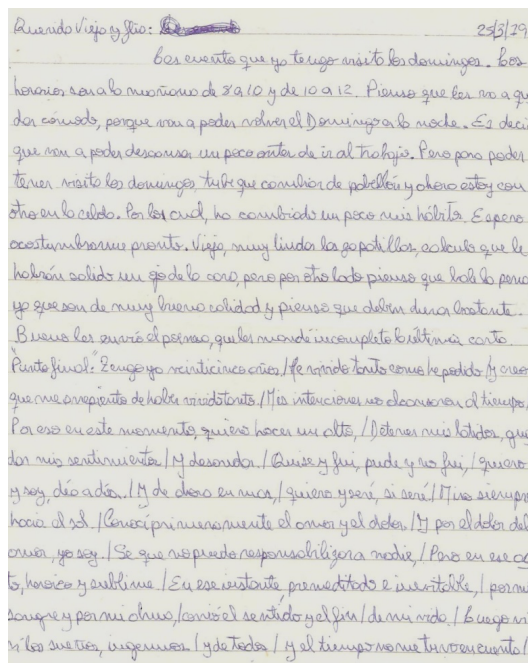 Querido Viejo y Tío: 25/3/79
Les cuento que ya tengo visita los domingos. Los
horarios son a la mañana de 8 a 10 y de 10 a 12. Pienso que les va a que
dar cómodo, porque van a poder volver el Domingo a la noche. Es deci
que van a poder descansar un poco antes de ir al trabajo. Pero para poder
tener visita los domingos, tube que cambiar de pabellón y ahora estoy con
otro en la celda. Por los cual, ha cambiado un poco mis hábitos. Espero
acostumbrarme pronto. Viejo, muy lindas las zapatillas, calculo que le
habrán salido un ojo de la cara, pero por otro lado pienso que bale la pena
ya que son de muy buena calidad y pienso que deben durar bastante.
Bueno les envío el poema, que les mandé incompleto la última carta.
"Punto final": Tengo ya veinticinco años, / He vivido tanto como he podido / Y creo
que me arrepiento de haber vivido tanto. / Mis intenciones no alcanzaron al tiempo,
Por eso en este momento, quiero hacer un alto, / Detener mis latidos, gua
dar mis sentimientos / Y desandar. / Quise y fui, pude y no fui, / quiero
y soy, día a día. / Y de ahora en mas, / quiero y seré, si seré / Mira siempre
hacia el sol. / Conocí primeramente el amor y el dolor. / Y por el dolor del
amor, yo soy. / Se que no puedo responsabilizar a nadie, / Pero en ese ac
to, heroico y sublime / En ese instante, premeditado e inevitable, / por mi
sangre y por mi alma, / corrió el sentido y el fin / de mi vida. / Luego vi
vi los sueños, ingenuos / y de todos / y el tiempo no me tuvo en cuenta /